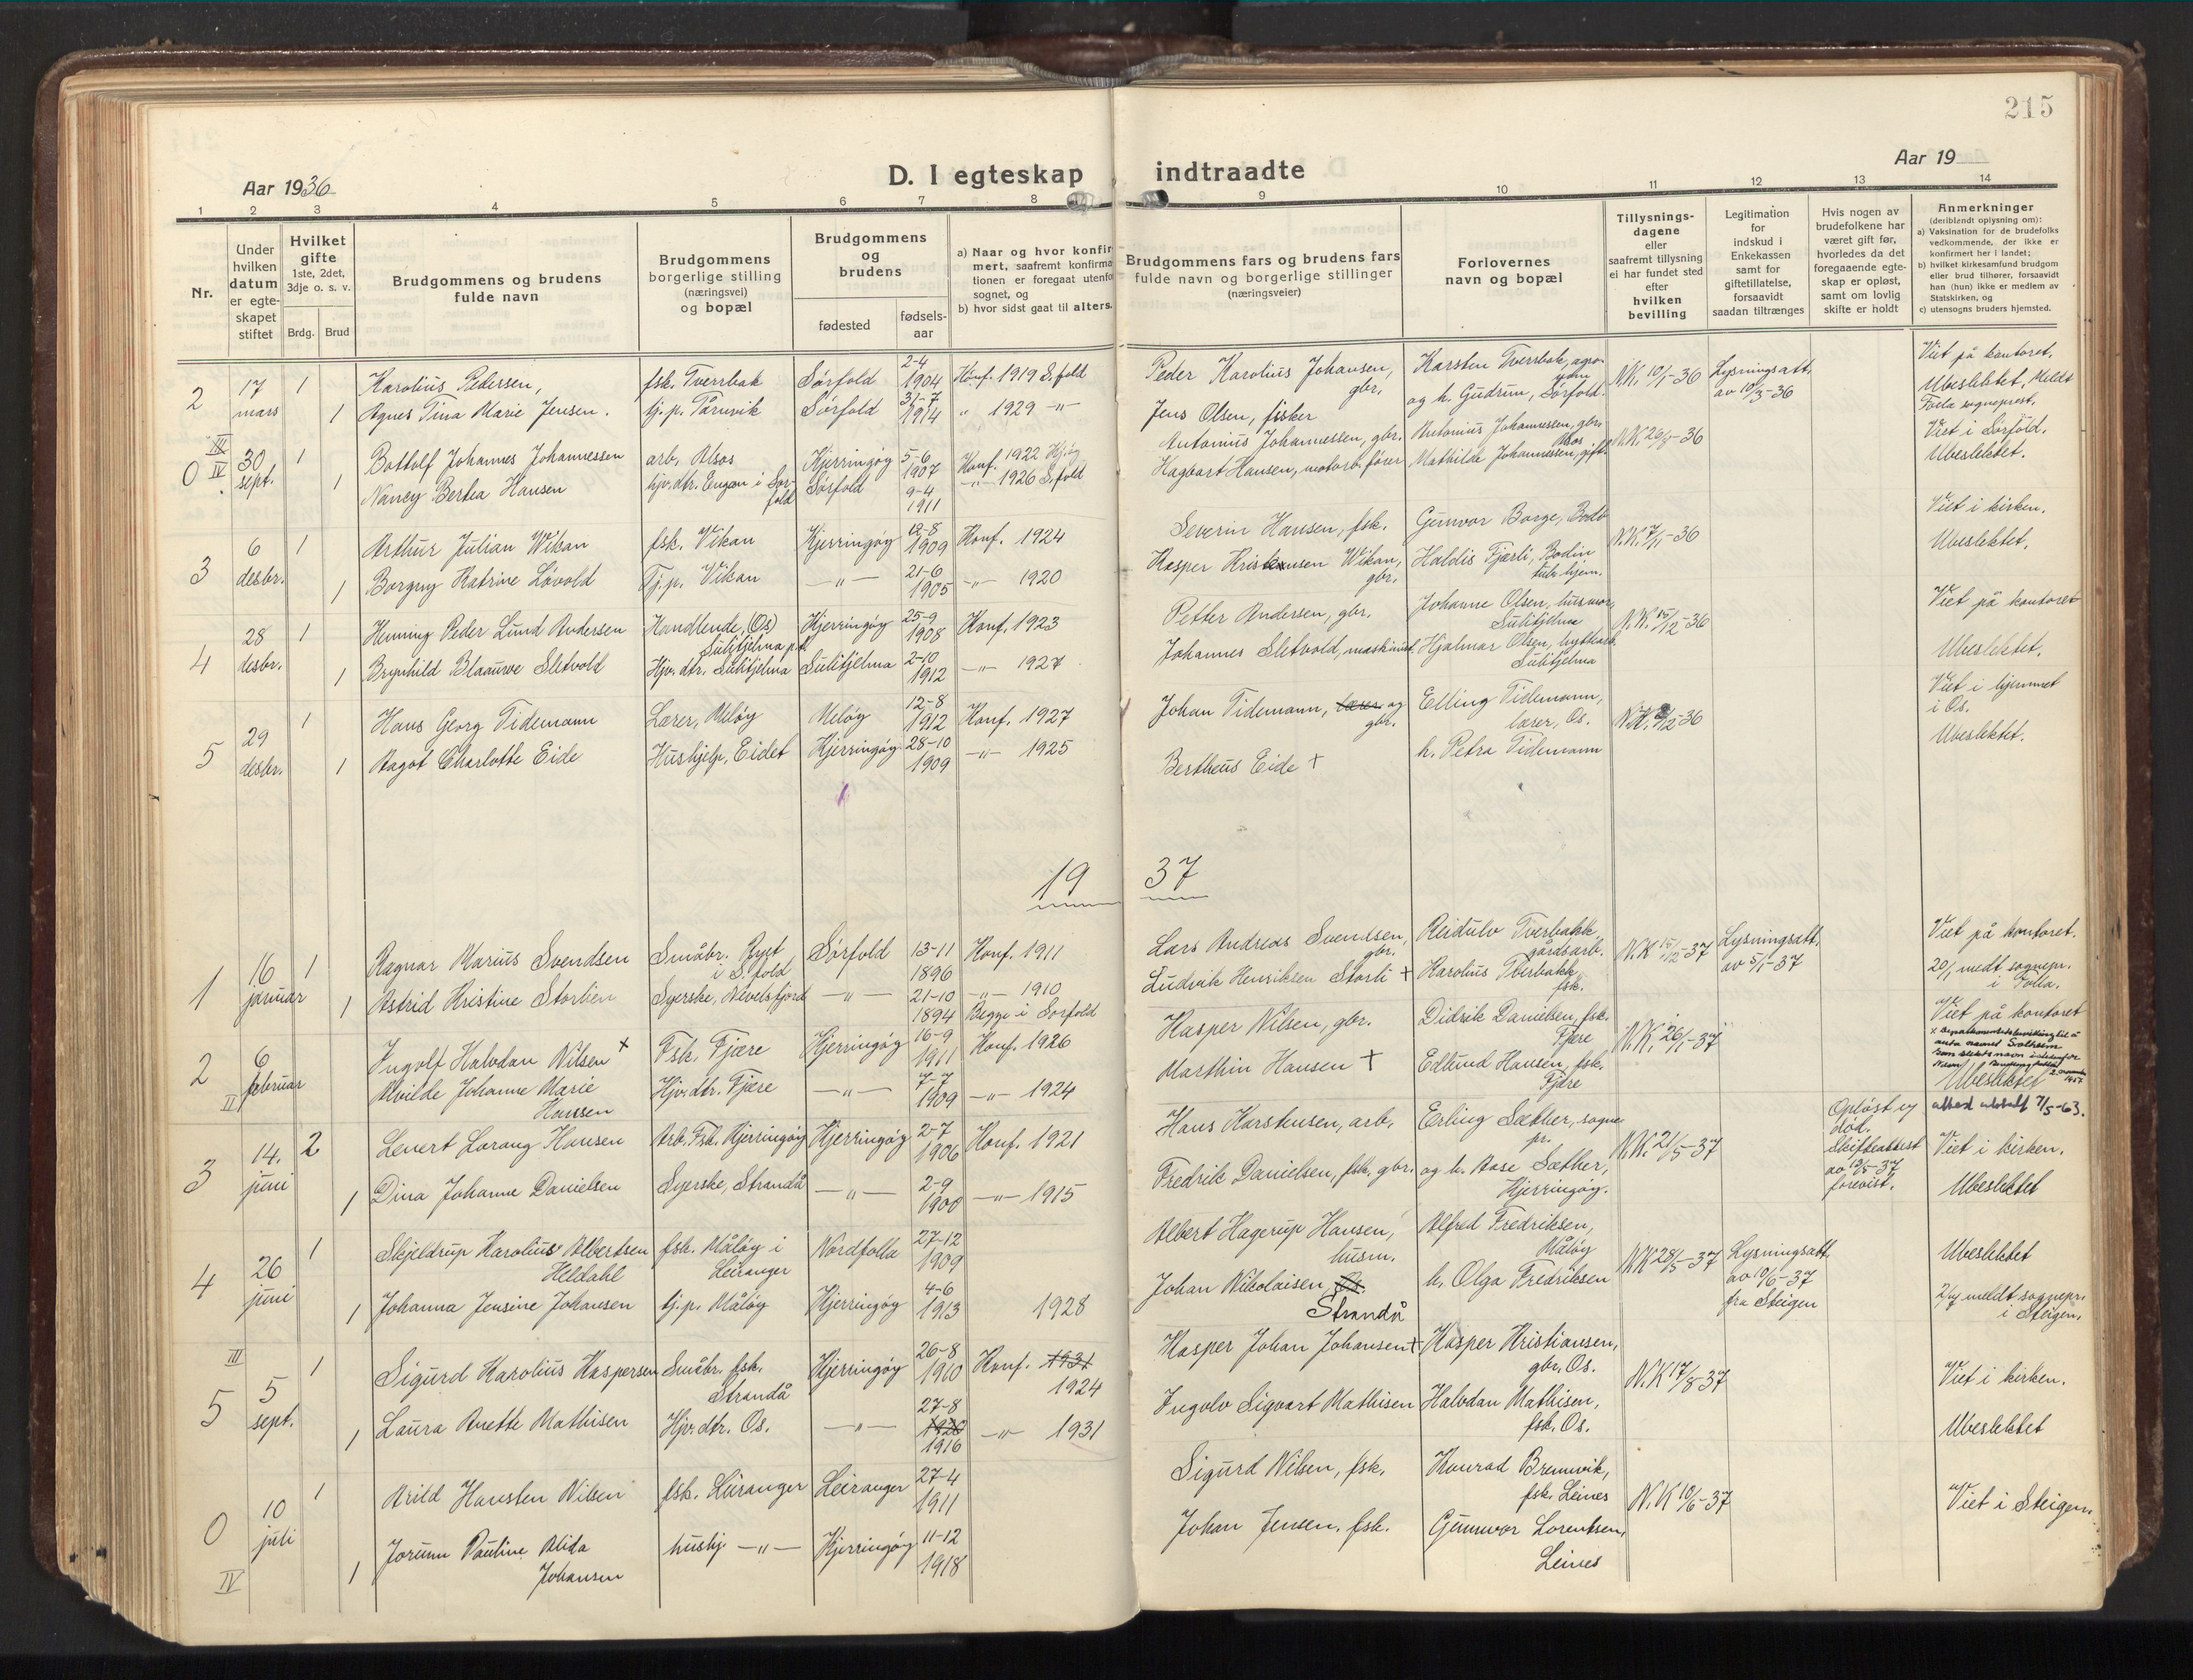 215
Aar 1936
D. I egteskap indtraadte
Aar 19
1 2 3 4 5 6 7 8 9 10 11 12 13 14
Nr.
Under hvilken datum er egteskapet stiftet
Hvilket gifte 1ste, 2det, 3dje o. s. v.
Brdg. Brud
Brudgommens og brudens fulde navn
Brudgommens borgerlige stilling (næringsvei) og bopæl
Brudgommens og brudens
fødested
fødselsaar
a) Naar og hvor konfirmert, saafremt konfirmationen er foregaat utenfo sognet, og
b) hvor sidst gaat til alters.
Brudgommens fars og brudens fars fulde navn og borgerlige stillinger (næringsveier)
Forlovernes navn og bopæl
Tillysningsdagene eller saafremt tillysning ei har fundet sted efter hvilken bevilling
Legitimation for indskud i Enkekassen samt for giftetillatelse, forsaavidt saadan tiltrænges
Hvis nogen av brudefolkene har været gift før, hvorledes da det foregaaende egteskap er opløst, samt om lovlig skifte er holdt
Anmerkninger (deriblandt oplysning om):
a) Vaksination for de brudefolks vedkommende, der ikke er konfirmert her i landet;
b) hvilket kirkesamfund brudgom eller brud tilhører, forsaavidt han (hun) ikke er medlem av Statskirken, og
c) utensogns bruders hjemsted.
2 17 mars 1 Karolius Pedersen, fsk. Tverrbak Sørfold 2-4 1904 Konf. 1919 S. fold Peder Karolius Johansen, gbr. Karsten Tverrbak, agronom N.K. 10/1-36 Lysningsatt. av 10/3-36 Viet på kontoret.
1 Agnes Tina Marie Jensen. tj.p. Tårnvik Sørfold 31-7 1914 " 1929 -"- Jens Olsen, fisker og h. Gudrun, Sørfold. Ubeslektet, Meldt Folla sogneprest.
III
0 IV 30 sept. 1 Bottolf Johannes Johannessen arb. Alsos Kjerringøy 5-6 1907 Konf. 1922 Kj.øy Antonius Johannessen, gbr. Antonius Johannessen, gbr. Alsos N.K. 26/8-36 Viet i Sørfold.
1 Nancy Bertea Hansen hjv. dtr. Engan i Sørfold Sørfold 9-4 1911 -"- 1926 S. fold Hagbart Hansen, motorb.fører Mathilde Johannessen, gift. Ubeslektet.
3 6 desbr. 1 Arthur Julian Wikan fsk. Vikan Kjerringøy 12-8 1909 Konf. 1924 Severin Hansen, fsk. Gunvor Borge, Bodø N.K. 7/11-36 Viet i kirken.
1 Borgny Katrine Løvold Tj.p. Vikan -"- 21-6 1905 -"- 1920 Kasper Kristensen Wikan, gbr. Haldis Fjærli, Bodin tub. hjem. Ubeslektet.
4 28 desbr. 1 Henning Peder Lund Andersen Handlende, (Os) Sulitjelma p.t. Kjerringøy 25-9 1908 Konf. 1923 Petter Andersen, gbr. Johanne Olsen, husmor, Sulitjelma N.K. 15/12-36 Viet på kontoret
1 Brynhild Blaaurve Sletvold Hjv. dtr. Sulitjelma Sulitjelma 2-10 1912 -"- 1927 Johannes Sletvold, maskinist. Hjalmar Olsen, hyttearb. Sulitjelma Ubeslektet.
5 29 desbr. 1 Hans Georg Tidemann Lærer, Meløy Meløy 12-8 1912 Konf. 1927 Johan Tidemann, lærer og gbr. Elling Tidemann, lærer, Os. N.K. /12-36 Viet i hjemmet i Os.
1 Aagot Charlotte Eide Hushjelp, Eidet Kjerringøy 28-10 1909 -"- 1925 Bertheus Eide + h. Petra Tidemann Ubeslektet.
19 37
1 16 januar 1 Ragnar Marius Svendsen Småbr. Ryst i S. fold Sørfold 13-11 1896 Konf. 1911 Lars Andreas Svendsen, gbr. Reidulv Tverbakk, gårdsarb. N.K 15/12-37 Lysningsatt. av 5/1-37 Viet på kontoret.
1 Astrid Kristine Storlien Syerske, Nevelsfjord -"- 21-10 1894 -"- 1910 Begge i Sørfold Ludvik Henriksen Storli + Karolius Tverbakk, fsk. 20/1 medt sognepr. i Folla.
2 6 februar Ingolf Halvdan Nilsen + Fsk. Fjære Kjerringøy 16-9 1911 Konf. 1926 Kasper Nilsen, gbr. Didrik Danielsen, fsk. Fjære N.K. 26/1-37 Viet på kontoret
II Alvilde Johanne Marie Hansen Hjv. dtr. Fjære -"- 7-7 1909 -"- 1924 Marthin Hansen + Edlund Hansen, fsk. Fjære Ubeslektet
3 14. juni 2 Lenert Lorang Hansen Arb. Fsk. Kjerringøy Kjerringøy 2-7 1906 Konf. 1921 Hans Karstensen, arb. Erling Sæther, sognepr. N.K. 21/5-37 Opløst v/ død. Skifteattest av 13/5-37 forevist. Viet i kirken.
1 Dina Johanne Danielsen Syerske, Strandå -"- 2-9 1900 -"- 1915 Fredrik Danielsen, fsk. gbr. og h. Aase Sæther, Kjerringøy. Ubeslektet
4 26 juni 1 Skjeldrup Karolius Albertsen Heldahl fsk. Måløy i Leiranger Nordfolla 27-12 1909 Albert Hagerup Hansen, husm. Alfred Fredriksen, Måløy N.K 28/5-37 Lysningsatt. av 10/6-37 fra Steigen Ubeslektet
1 Johanna Jensine Johansen tj.p. Måløy Kjerringøy 4-6 1913 1928 Johan Nikolaisen, Os. Strandå h. Olga Fredriksen 2/7 meldt sognepr. i Steigen.
III
5 5 sept. 1 Sigurd Karolius Kaspersen Småbr. fsk. Strandå Kjerringøy 26-8 1910 Konf. 1931 1924 Kasper Johan Johansen + Kasper Kristiansen, gbr. Os. N.K 17/8-37 Viet i kirken.
1 Laura Anette Mathisen Hjv. dtr. Os. -"- 27-8 1920 1916 -"- 1931 Ingolv Sigvart Mathisen Halvdan Mathisen, fsk. Os. Ubeslektet
0 10 juli 1 Arild Hansten Nilsen fsk. Leiranger Leiranger 27-4 1911 Sigurd Nilsen, fsk. Konrad Bremvik, fsk. Leines N.K 10/6-37 Viet i Steigen.
IV 1 Jorunn Pauline Alida Johansen hushj -"- Kjerringøy 11-12 1918 Johan Jensen, fsk. Gunnvor Lorentsen, Leines